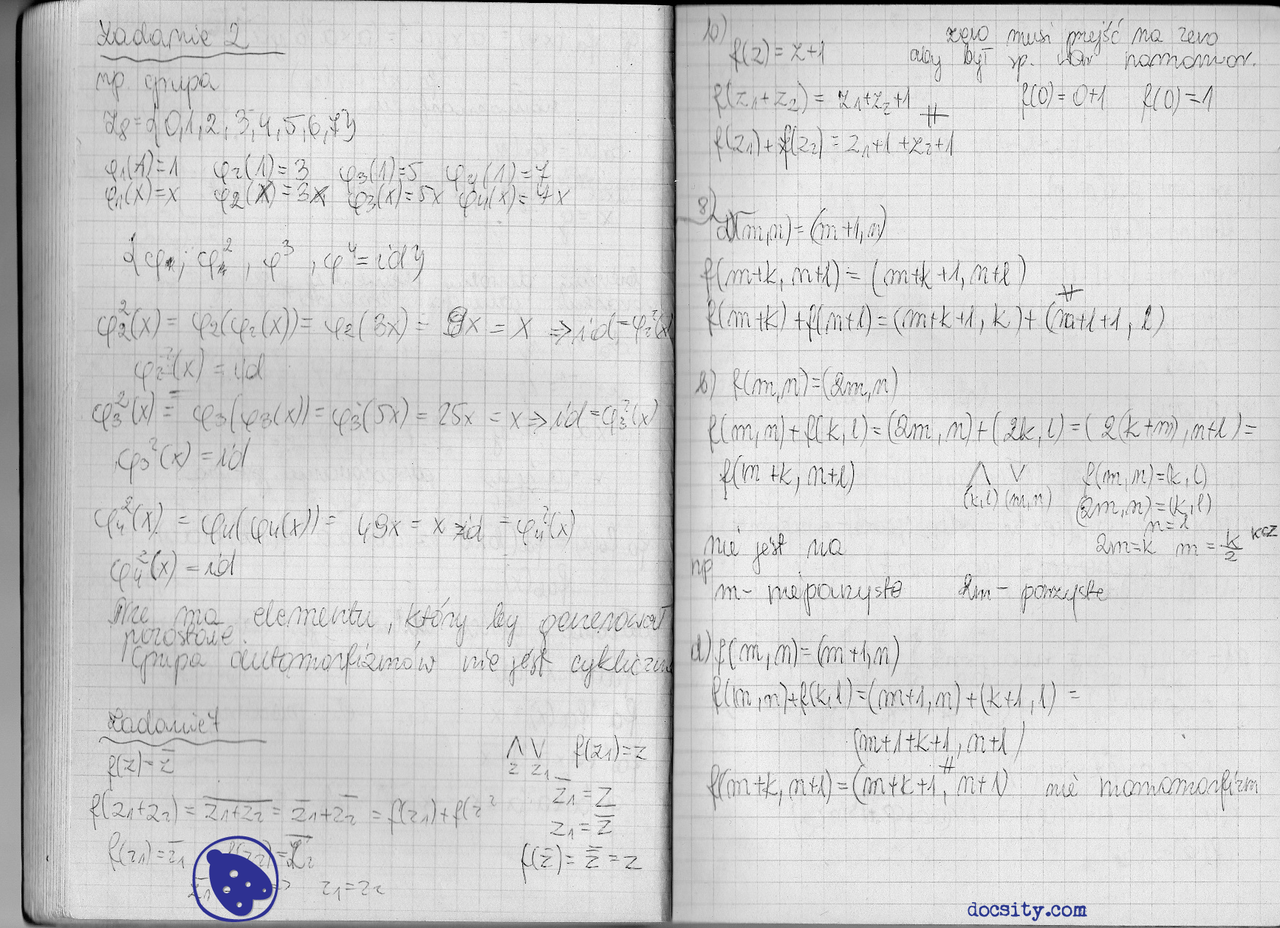 Zadanie 2
np. grupa
Z8 = {0,1,2,3,4,5,6,7}
φ1(1)=1 φ2(1)=3 φ3(1)=5 φ4(1)=7
φ1(x)=x φ2(x)=3x φ3(x)=5x φ4(x)=7x
{φ, φ², φ³, φ⁴=id}
φ2²(x) = φ2(φ2(x)) = φ2(3x) = 9x = x ⇒ id = φ2²(x)
φ2²(x) = id
φ3²(x) = φ3(φ3(x)) = φ3(5x) = 25x = x ⇒ id = φ3²(x)
φ3²(x) = id
φ4²(x) = φ4(φ4(x)) = 49x = x id = φ4²(x)
φ4²(x) = id
Nie ma elementu, który by generował
pozostałe.
Grupa automorfizmów nie jest
Zadanie 7
f(z) = z̅
⋀z ⋁z1 f(z1)=z
f(z1+z2) = \overline{z1+z2} = z̅1+z̅2 = f(z1)+f(z²
z̅1 = z
z1 = z̅
f(z1) = z̅1 f(z2) = z̅2
f(z̅) = z̿ = z
z̅1 ⇒ z1=z2
b) zero musi przejść na zero
f(z) = z+1 aby był sp. war homomor.
f(z1+z2) = z1+z2+1 f(0)=0+1 f(0)=1
≠
f(z1)+f(z2) = z1+1+z2+1
8)
f(m,n) = (m+1,n)
f(m+k, n+l) = (m+k+1, n+l)
≠
f(m+k)+f(n+l) = (m+k+1, k)+(n+l+1, l)
b) f(m,n) = (2m,n)
f(m,n)+f(k,l) = (2m,n)+(2k,l) = (2(k+m), n+l) =
f(m+k, n+l) ⋀(k,l) ⋁(m,n) f(m,n)=(k,l)
(2m,n)=(k,l)
n=l
nie jest na 2m=k m=k/2
np
m- nieparzyste 2m- parzyste
d) f(m,n) = (m+1,n)
f(m,n)+f(k,l) = (m+1,n)+(k+1,l) =
(m+1+k+1, n+l)
≠
f(m+k,n+l) = (m+k+1, n+l) nie
docsity.com